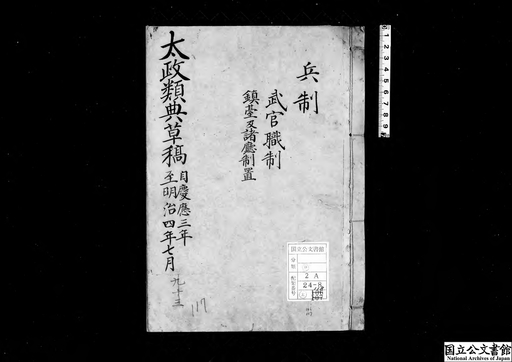 兵制
武官職制
鎮臺及諸廳制置
太政類典草稿
自慶應三年
至明治四年七月
九十三
117
国立公文書館
分類
配架番号
2 A
24-8
国立公文書館
National Archives of Japan